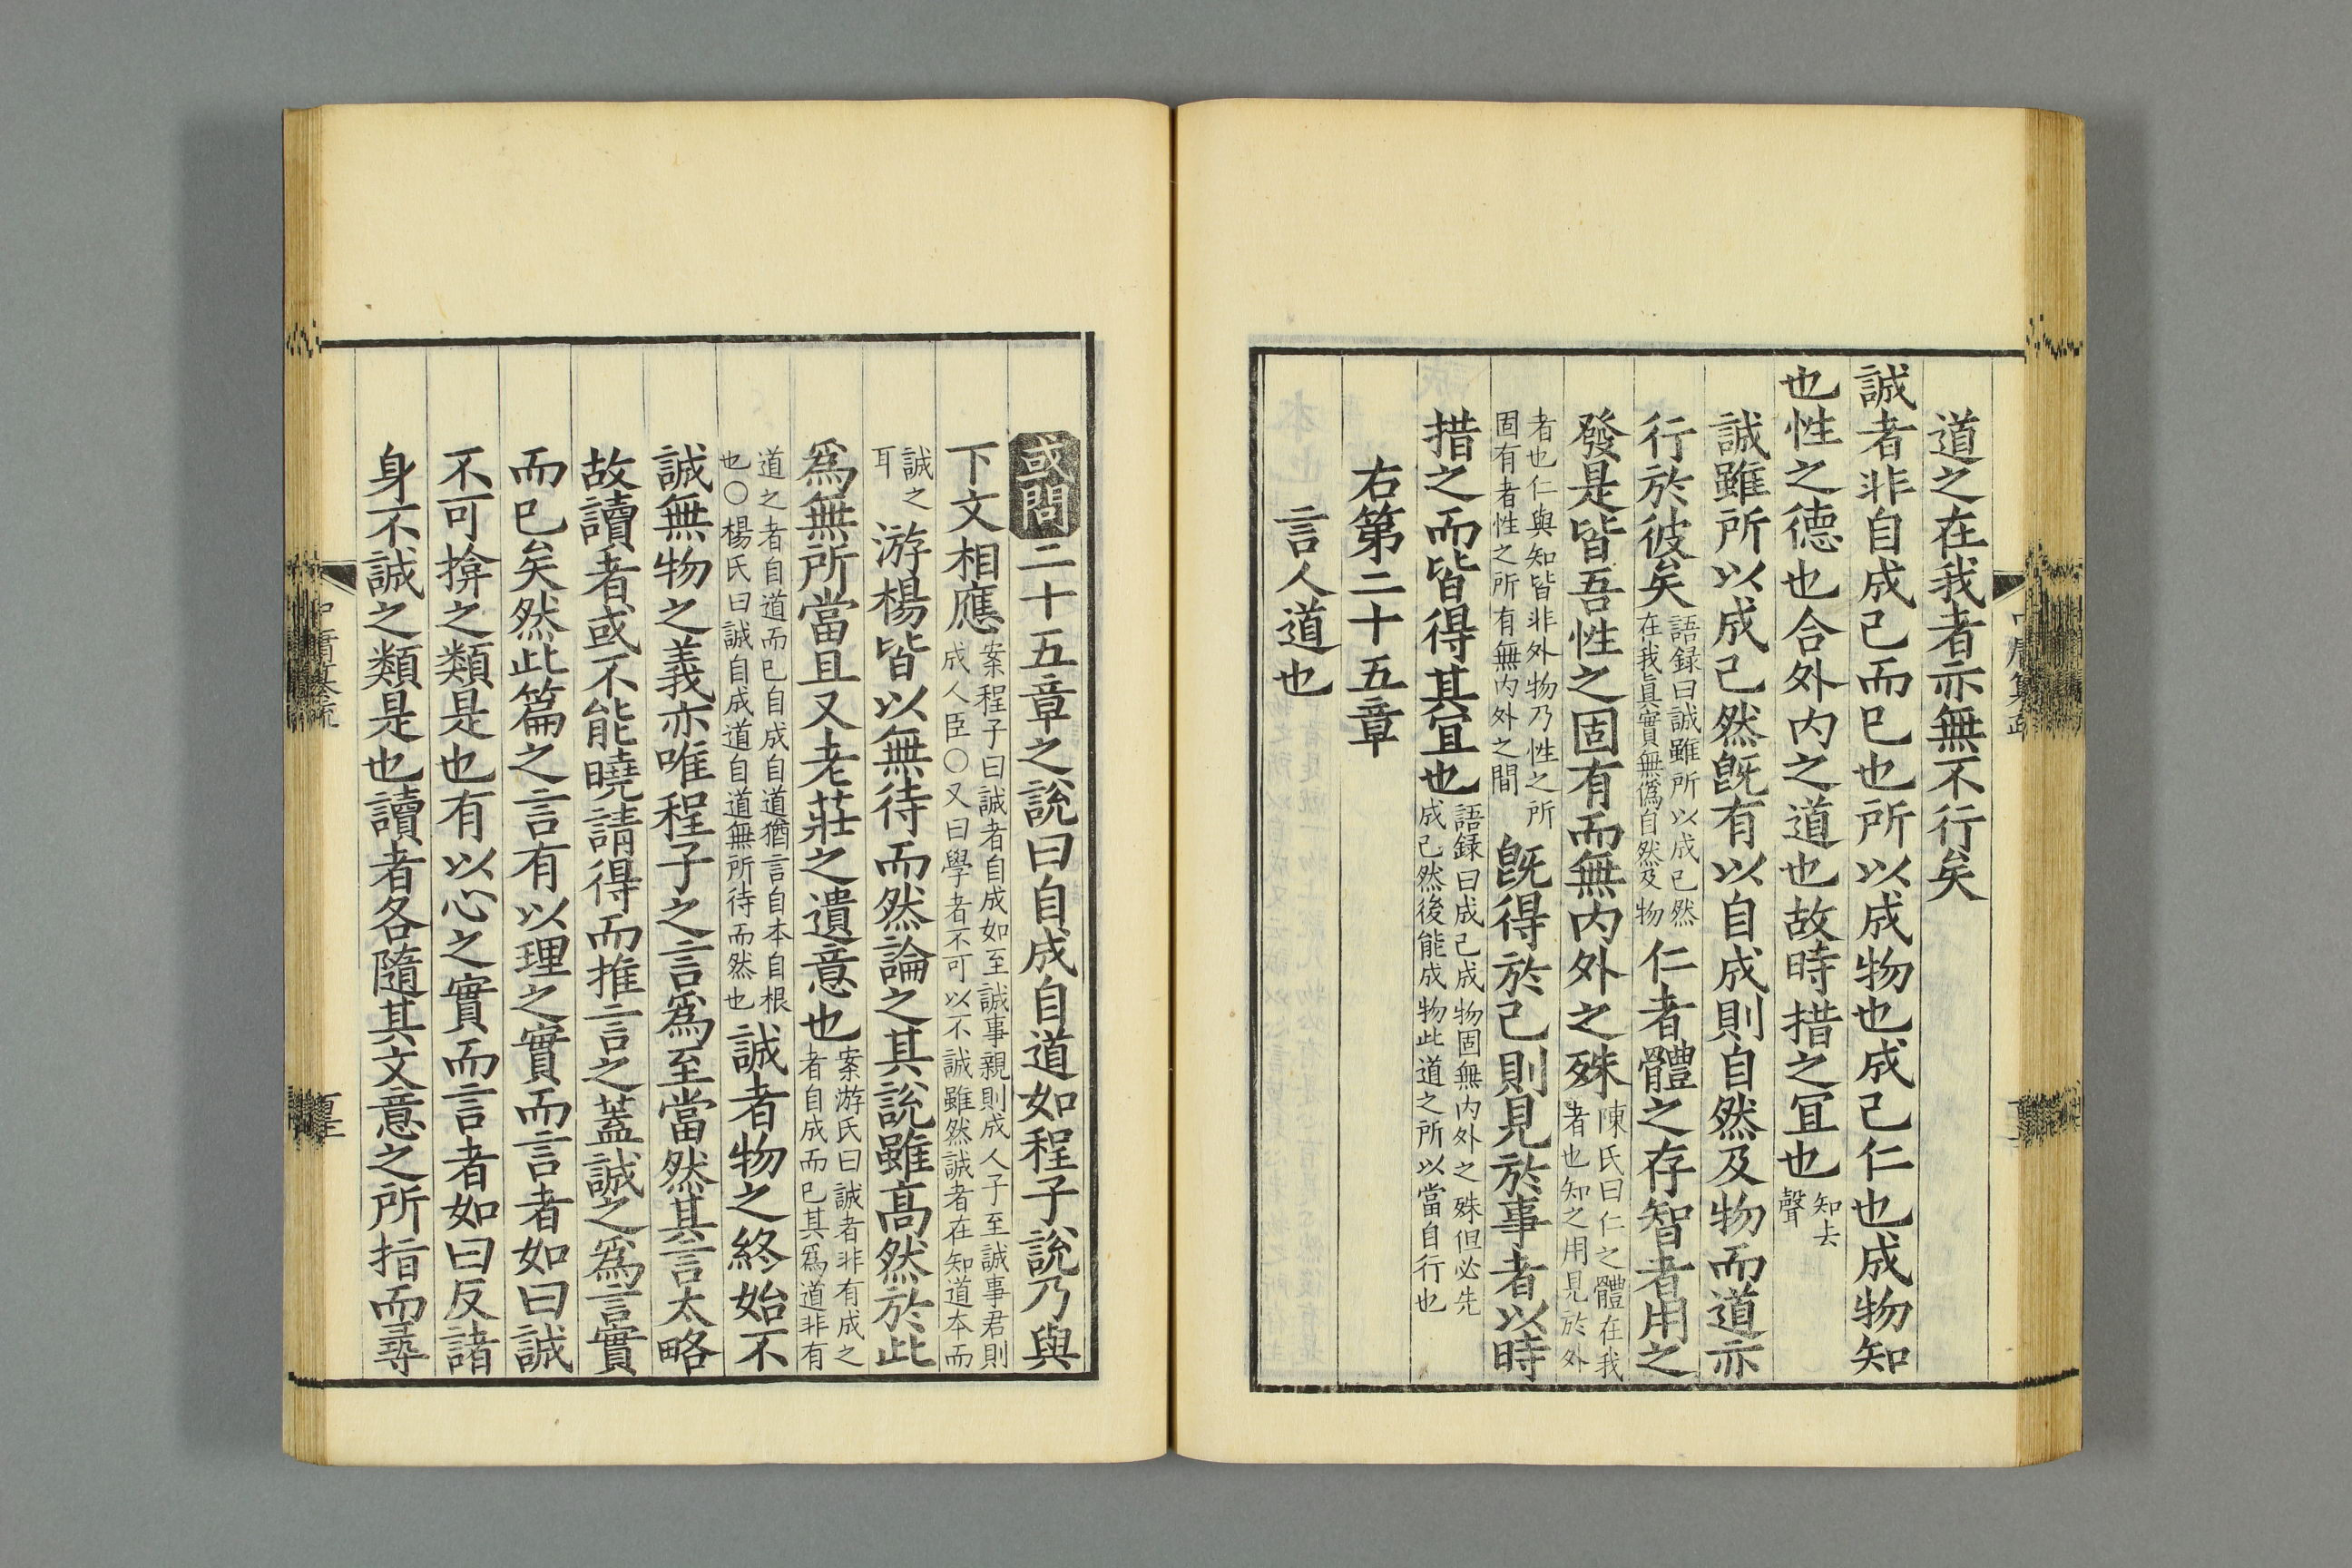 道之在我者亦無不行矣
誠者非自成己而已也所以成物也成己仁也成物知
也性之德也合外内之道也故時措之冝也知去聲
誠雖所以成己然旣有以自成則自然及物而道亦
行於彼矣語録曰誠雖所以成己然在我眞實無僞自然及物仁者體之存智者用之
發是皆吾性之固有而無内外之殊陳氏曰仁之體在我者也知之用見於外
者也仁與知皆非外物乃性之所固有者性之所有無内外之間旣得於己則見於事者以時
措之而皆得其冝也語録曰成己成物固無内外之殊但必先成己然後能成物此道之所以當自行也
右第二十五章
言人道也
或問二十五章之說曰自成自道如程子說乃與
下文相應案程子曰誠者自成如至誠事親則成人子至誠事君則成人臣○又曰學者不可以不誠雖然誠者在知道本而
誠之耳游楊皆以無待而然論之其説雖高然於此
爲無所當且又老莊之遺意也案游氏曰誠者非有成之者自成而已其爲道非有
道之者自道而已自成自道猶言自本自根也○楊氏曰誠自成道自道無所待而然也誠者物之終始不
誠無物之義亦唯程子之言爲至當然其言太略
故讀者或不能曉請得而推言之蓋誠之爲言實
而已矣然此篇之言有以理之實而言者如曰誠
不可揜之類是也有以心之實而言者如曰反諸
身不誠之類是也讀者各隨其文意之所指而尋